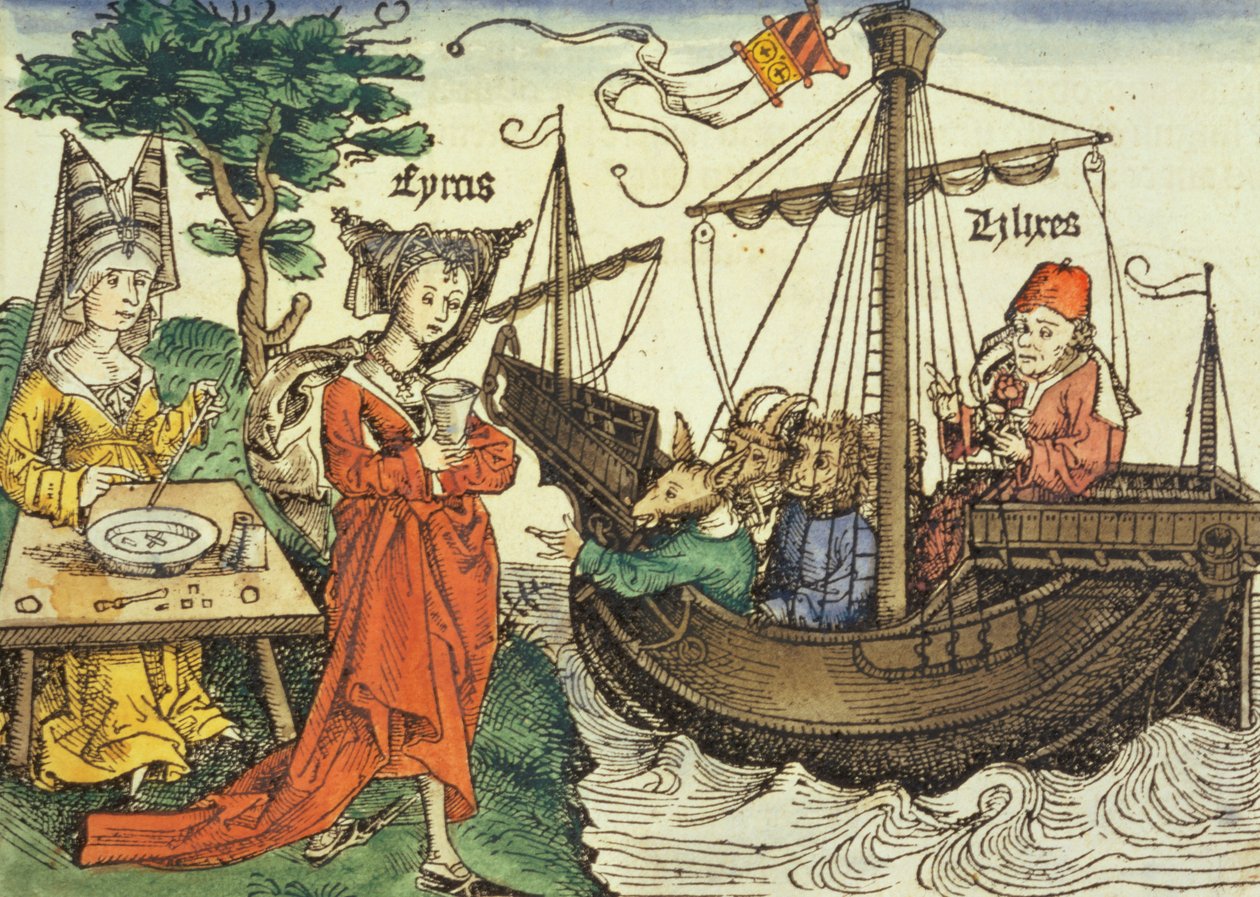 Cyrcis
Vlixes